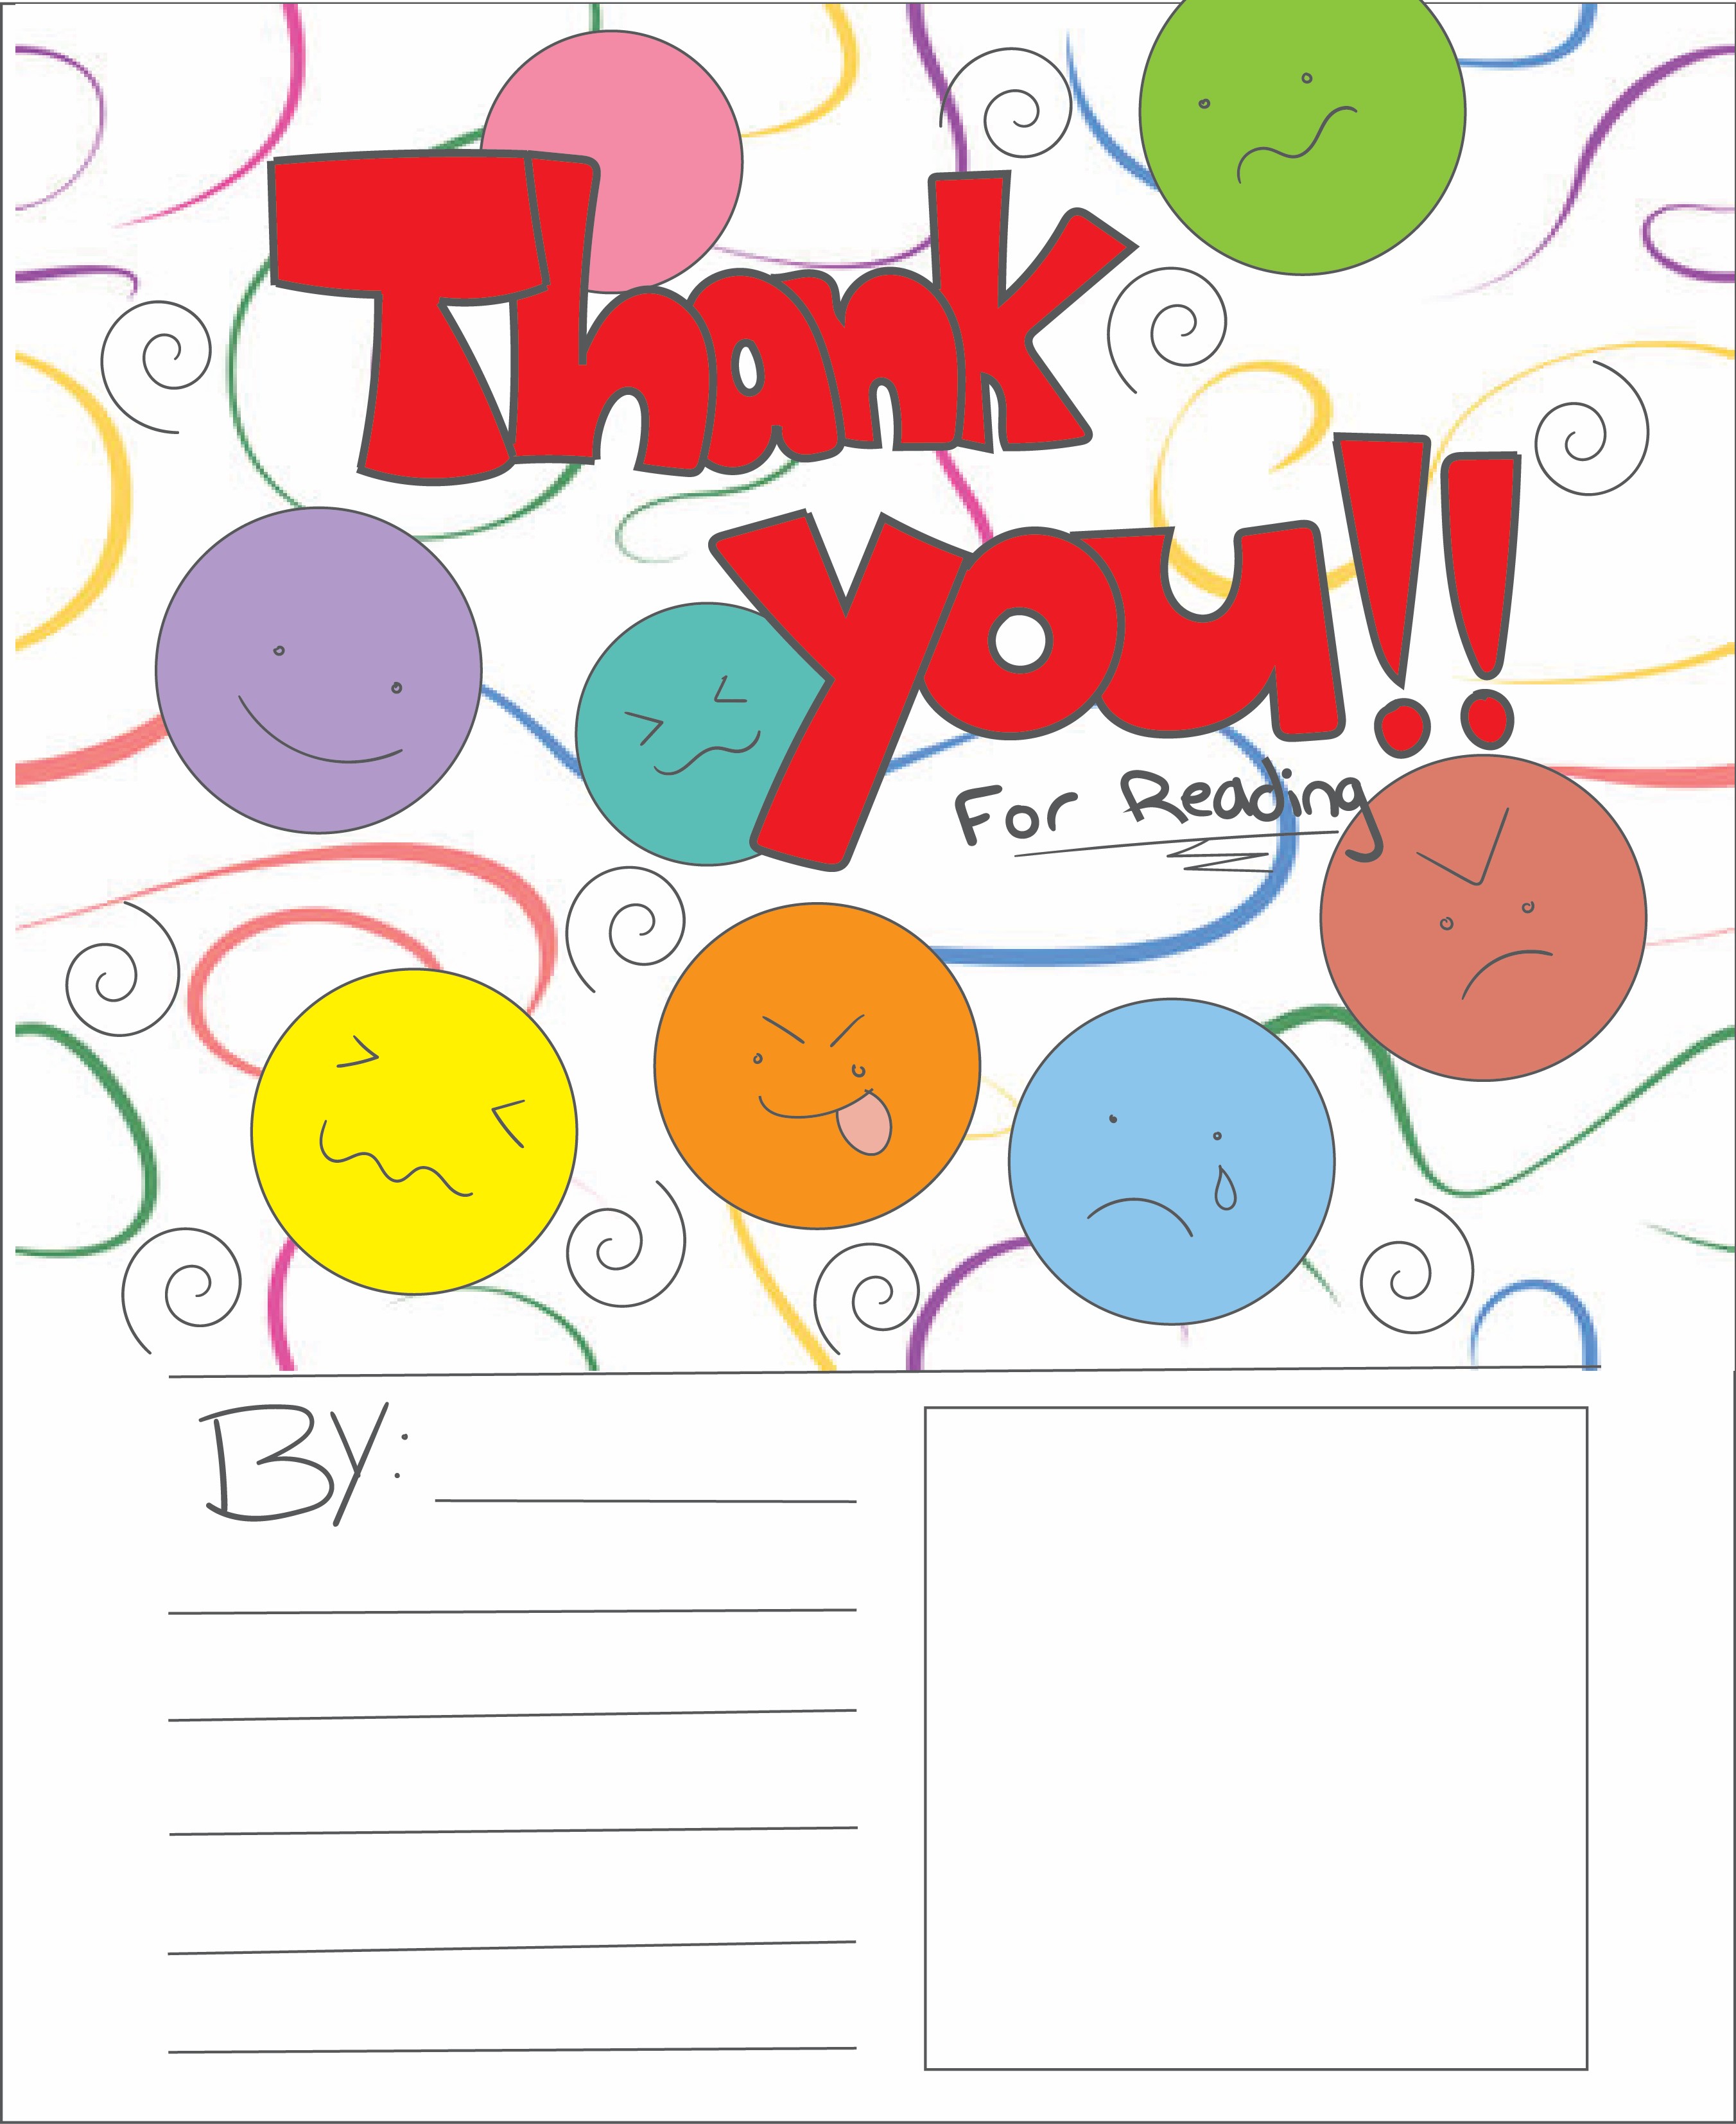 Thank
You!!
For Reading
By: